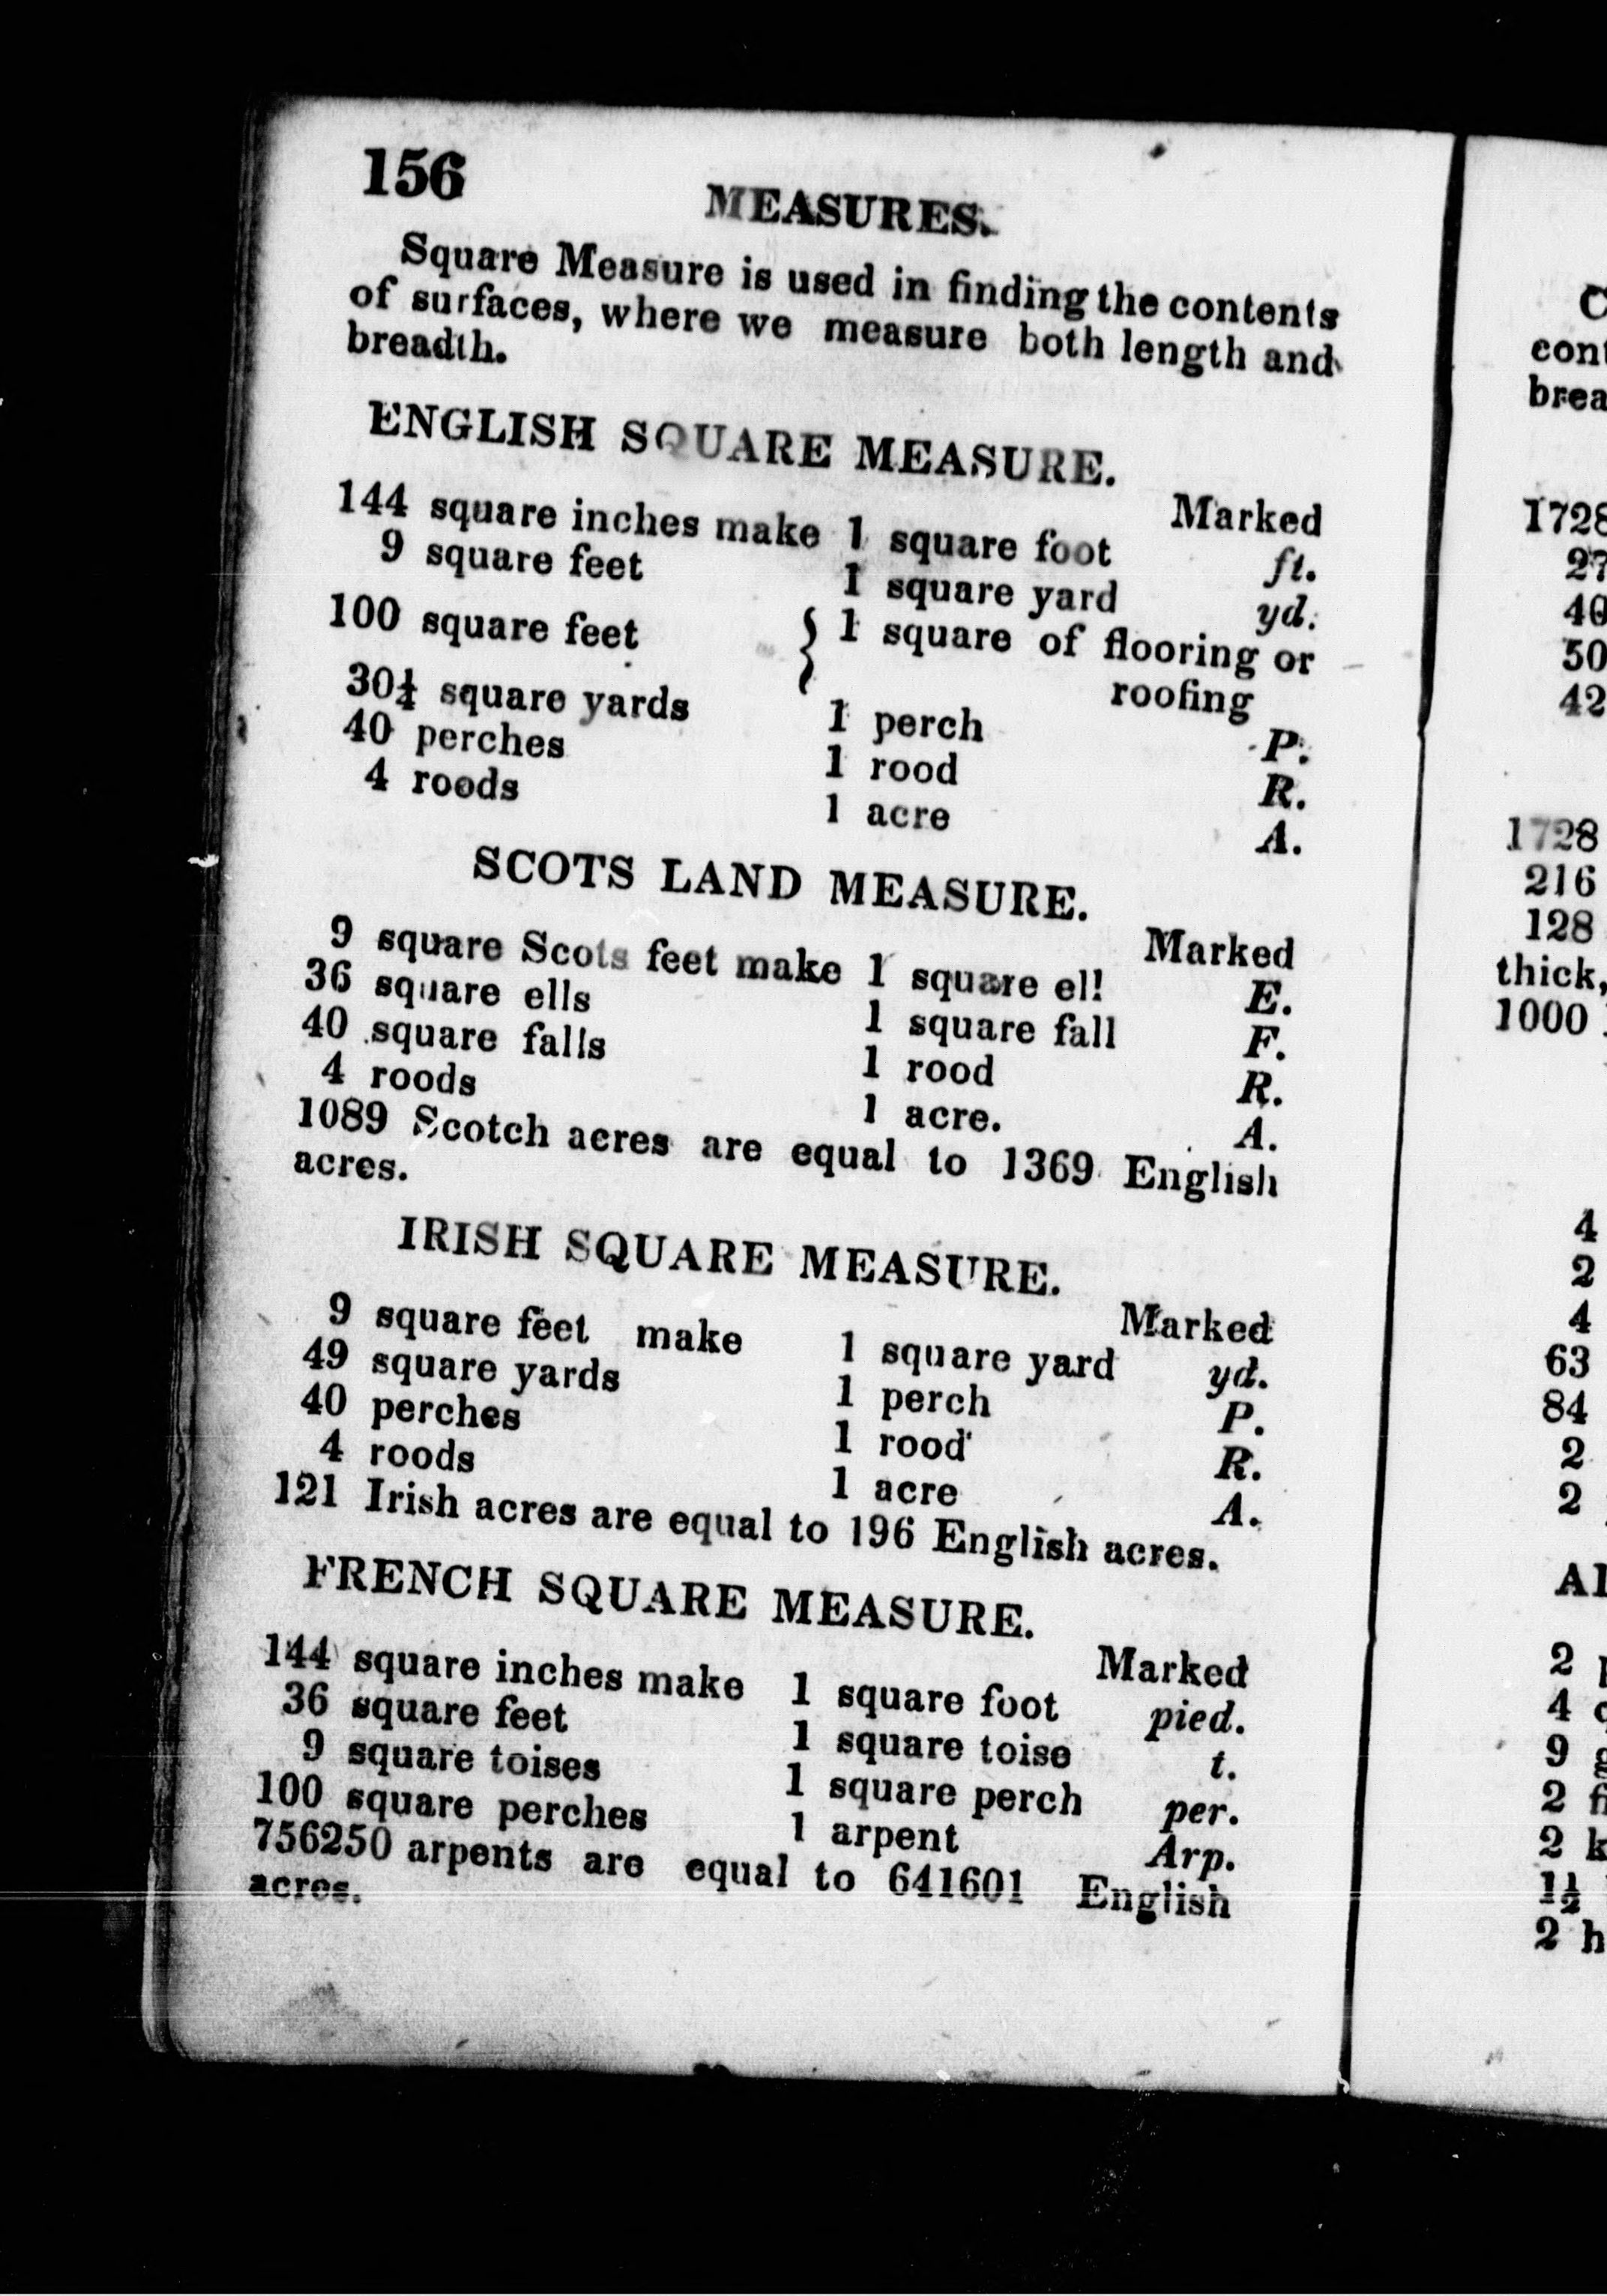 156
MEASURES.
Square Measure is used in finding the contents
of surfaces, where we measure both length and
breadth.
ENGLISH SQUARE MEASURE.
Marked
144 square inches make 1 square foot ft.
9 square feet 1 square yard yd.
100 square feet } 1 square of flooring or
roofing
30¼ square yards 1 perch P.
40 perches 1 rood R.
4 roods 1 acre A.
SCOTS LAND MEASURE.
Marked
9 square Scots feet make 1 square ell E.
36 square ells 1 square fall F.
40 square falls 1 rood R.
4 roods 1 acre. A.
1089 Scotch acres are equal to 1369 English
acres.
IRISH SQUARE MEASURE.
Marked
9 square feet make 1 square yard yd.
49 square yards 1 perch P.
40 perches 1 rood R.
4 roods 1 acre A.
121 Irish acres are equal to 196 English acres.
FRENCH SQUARE MEASURE.
Marked
144 square inches make 1 square foot pied.
36 square feet 1 square toise t.
9 square toises 1 square perch per.
100 square perches 1 arpent Arp.
756250 arpents are equal to 641601 English
acres.
1728
27
40
50
42
1728
216
128
thick,
1000
4
2
4
63
84
2
2
2
4
9
2
2
1½
2